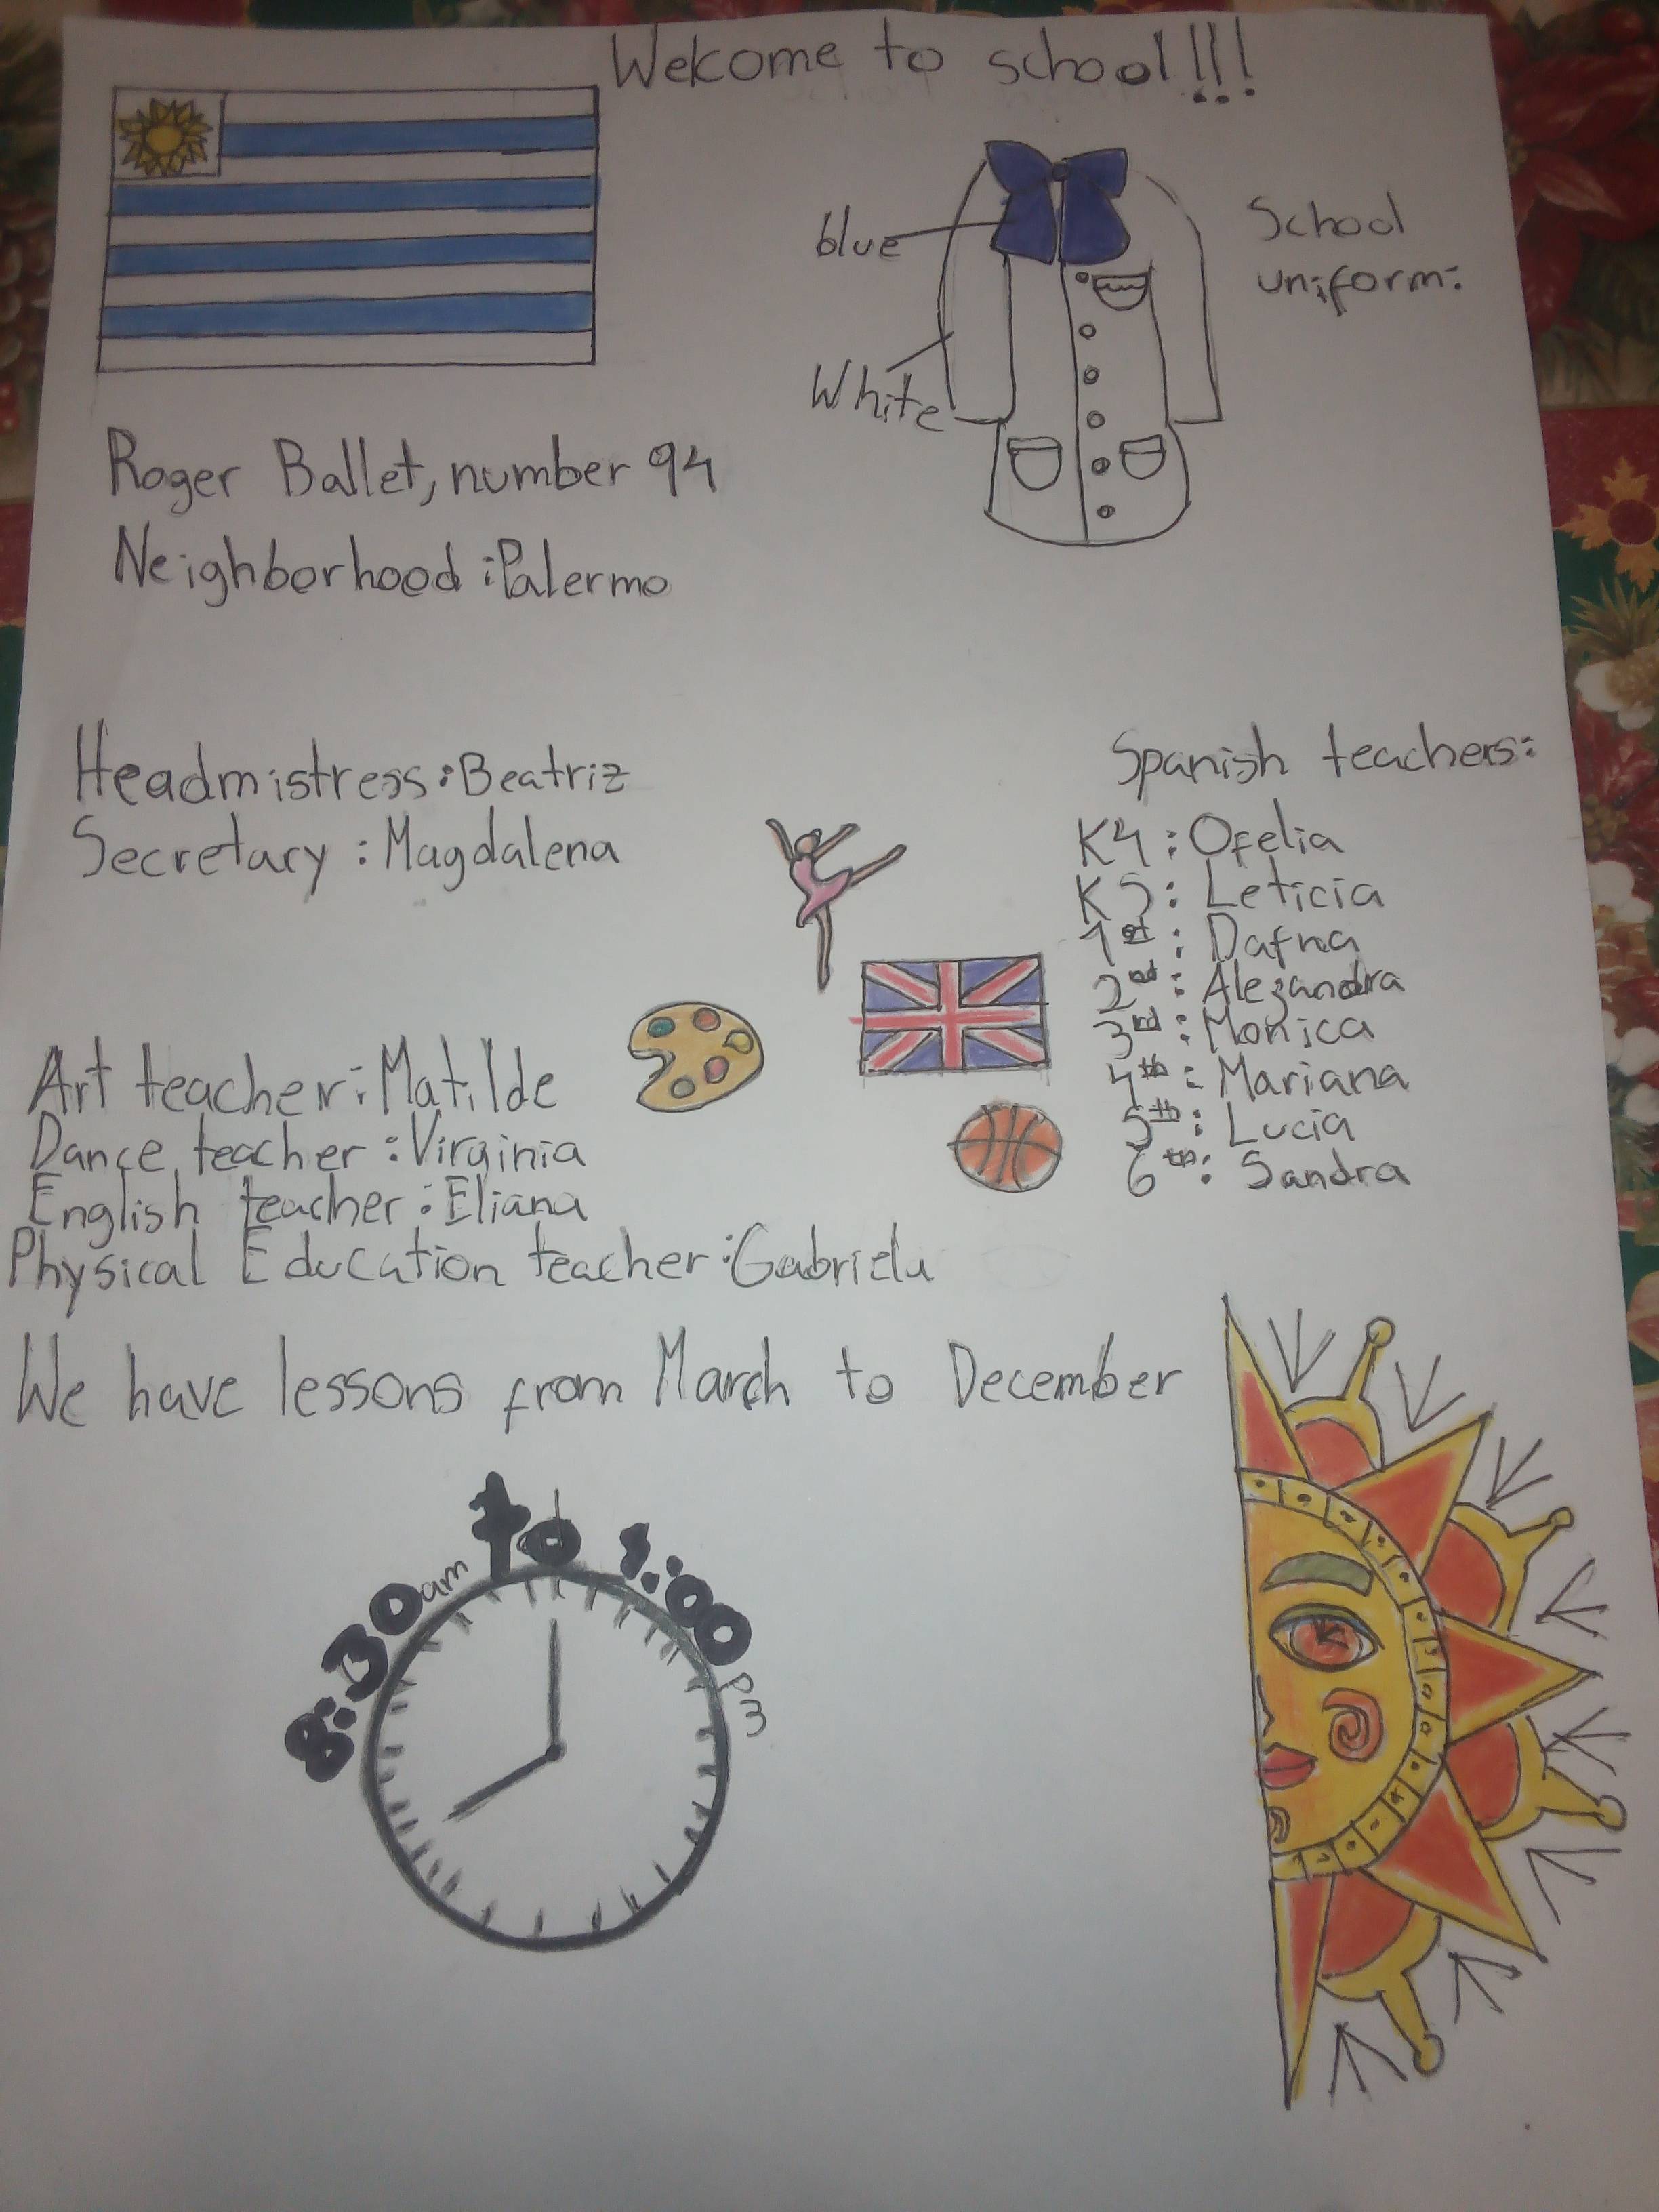 Welcome to school!!!
blue
White
School
uniform:
Roger Ballet, number 94
Neighborhood: Palermo
Headmistress: Beatriz
Secretary: Magdalena
Spanish teachers:
K4: Ofelia
K5: Leticia
1st: Dafna
2nd: Alejandra
3rd: Monica
4th: Mariana
5th: Lucia
6th: Sandra
Art teacher: Matilde
Dance teacher: Virginia
English teacher: Eliana
Physical Education teacher: Gabriela
We have lessons from March to December
8:30 am to 1:00 pm